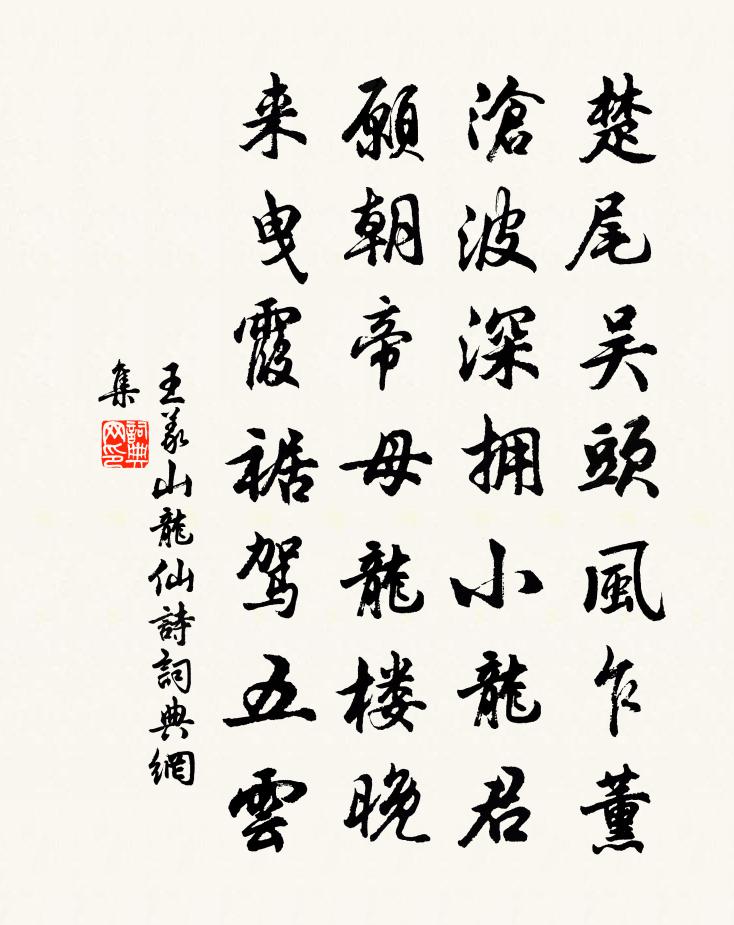 楚尾吴頭風乍薰
滄波深拥小龍君
願朝帝母龍楼晚
来曳霞裾駕五雲
王義山龍仙詩詞典網
集
詞典网印